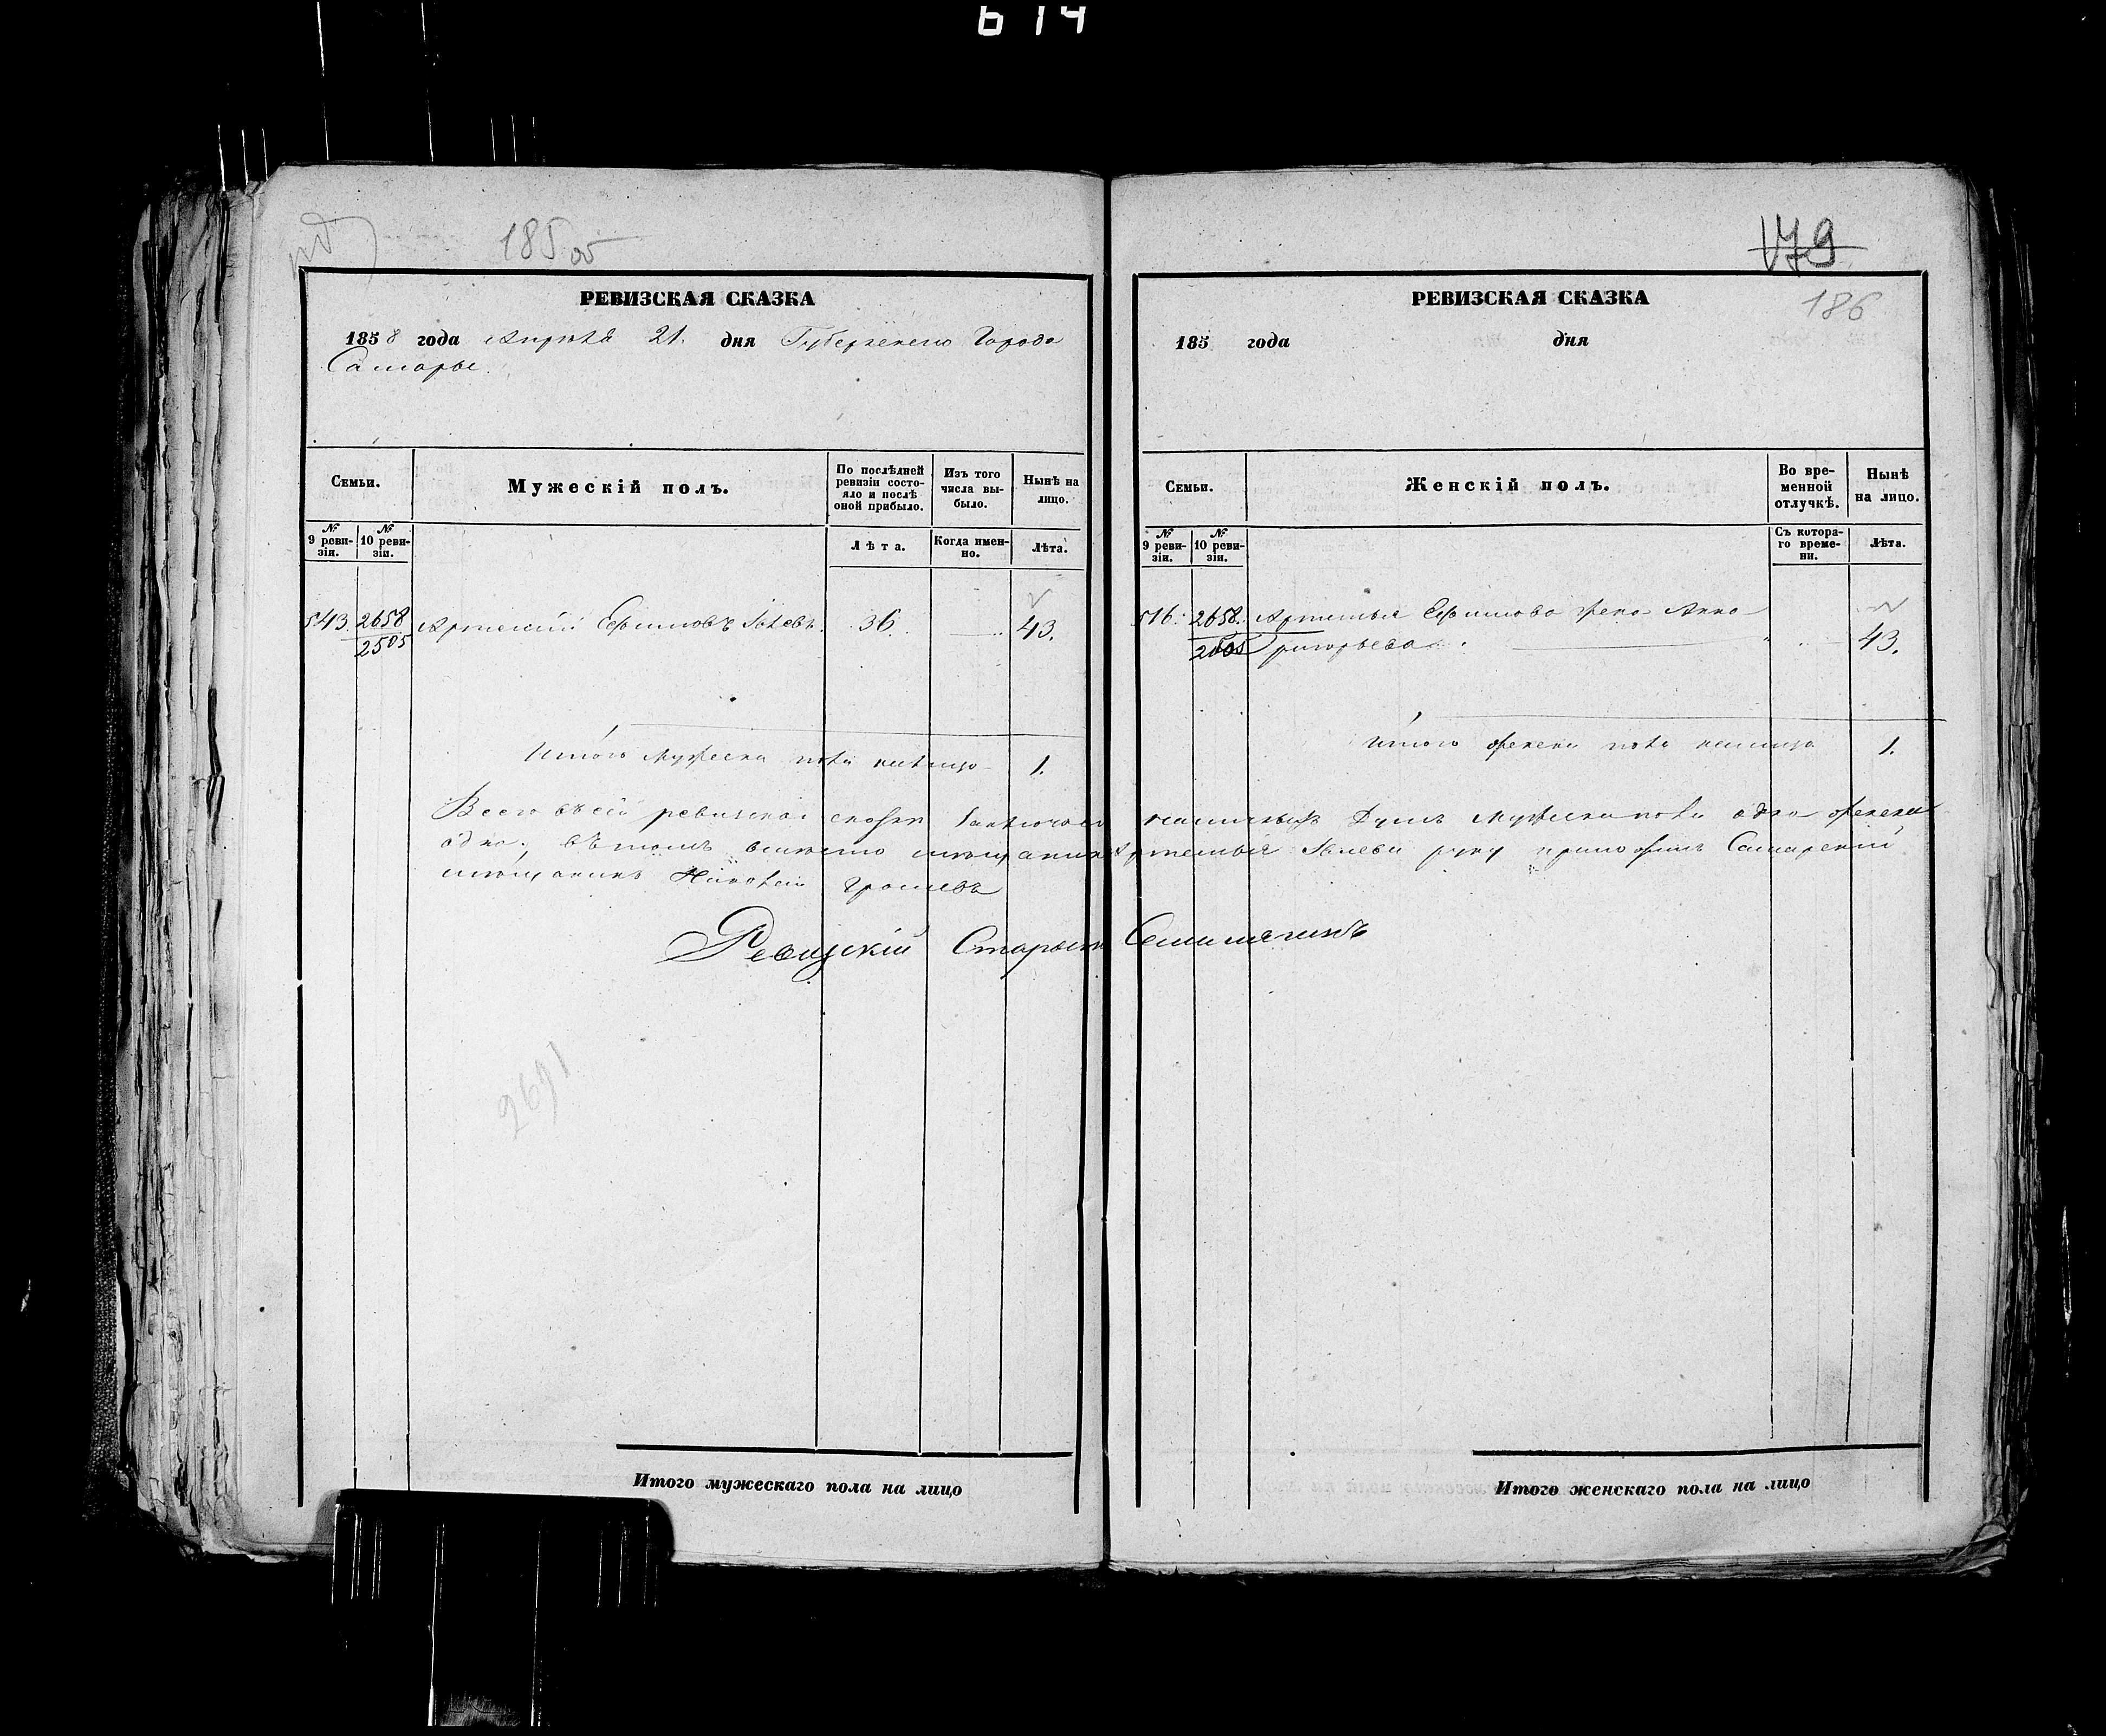 614
185 об
РЕВИЗСКАЯ СКАЗКА
1858 года Апреля 21. дня Губернскаго Города
Самары.
Семьи.
Мужескій полъ.
По послѣдней ревизіи состояло и послѣ оной прибыло.
Изъ того числа выбыло.
Нынѣ на лицо.
№ 9 ревизіи.
№ 10 ревизіи.
Лѣта.
Когда именно.
Лѣта.
543. 2658 Артемий Ефимовъ 36. 43.
2505
Итого мужеска пола налицо 1.
Всего въ сей ревизской сказки заключается наличныхъ душъ мужеска пола одна женска
одна. въ томъ вместо мещанина Артемья руку приложилъ Самарскій
мещанинъ
Ревизскій Староста
2691
Итого мужескаго пола на лицо
179
186
РЕВИЗСКАЯ СКАЗКА
185 года дня
Семьи.
Женскій полъ.
Во временной отлучкѣ.
Нынѣ на лицо.
№ 9 ревизіи.
№ 10 ревизіи.
Съ котораго времени.
Лѣта.
516. 2658. Артемья Ефимова жена Анна
Григорьева 43.
Итого женска пола налицо 1.
Итого женскаго пола на лицо